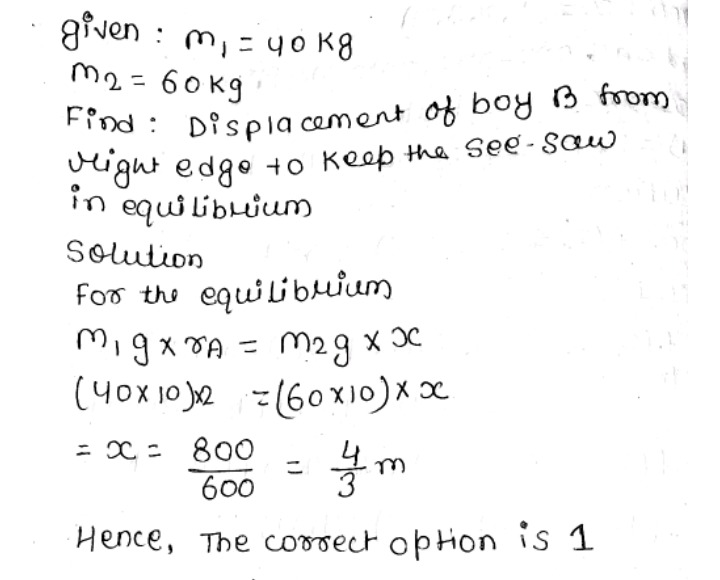 given : m₁ = 40 Kg
m₂ = 60 Kg
Find : Displacement of boy B from
right edge to keep the see-saw
in equilibrium
Solution
For the equilibrium
m₁g x rA = m₂g x x
(40x10)x2 = (60x10) x x
= x = 800/600 = 4/3 m
Hence, The correct option is 1